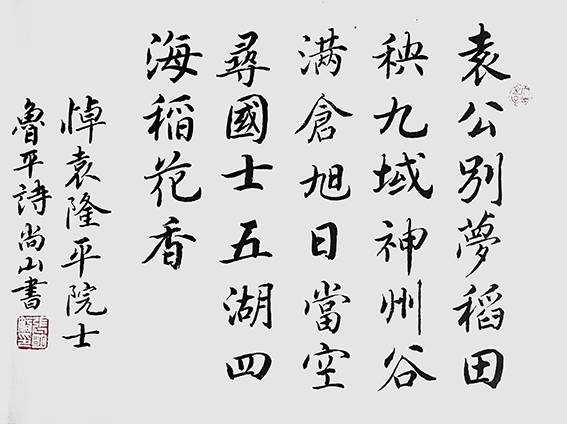 袁公別夢稻田
秧九域神州谷
满倉旭日當空
尋國士五湖四
海稻花香
悼袁隆平院士
魯平詩尚山書